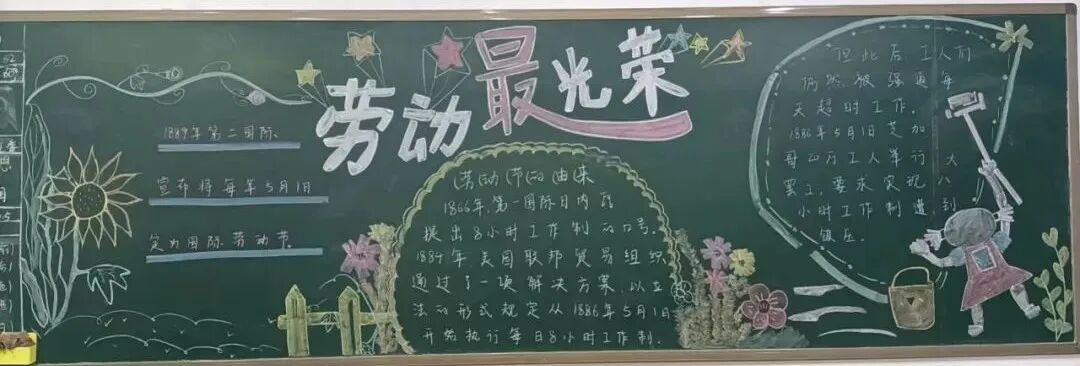 劳动最光荣
1889年第二国际
宣布将每年5月1日
定为国际劳动节
劳动节的由来
1866年,第一国际日内瓦
提出8小时工作制的口号.
1884年美国联邦贸易组织
通过了一项解决方案,以立
法的形式规定从1886年5月1日
开始执行每日8小时工作制.
但此后工人们
仍然被强迫每
天超时工作.
1886年5月1日芝加
哥四万工人举行大
罢工,要求实现八
小时工作制遭到
镇压.